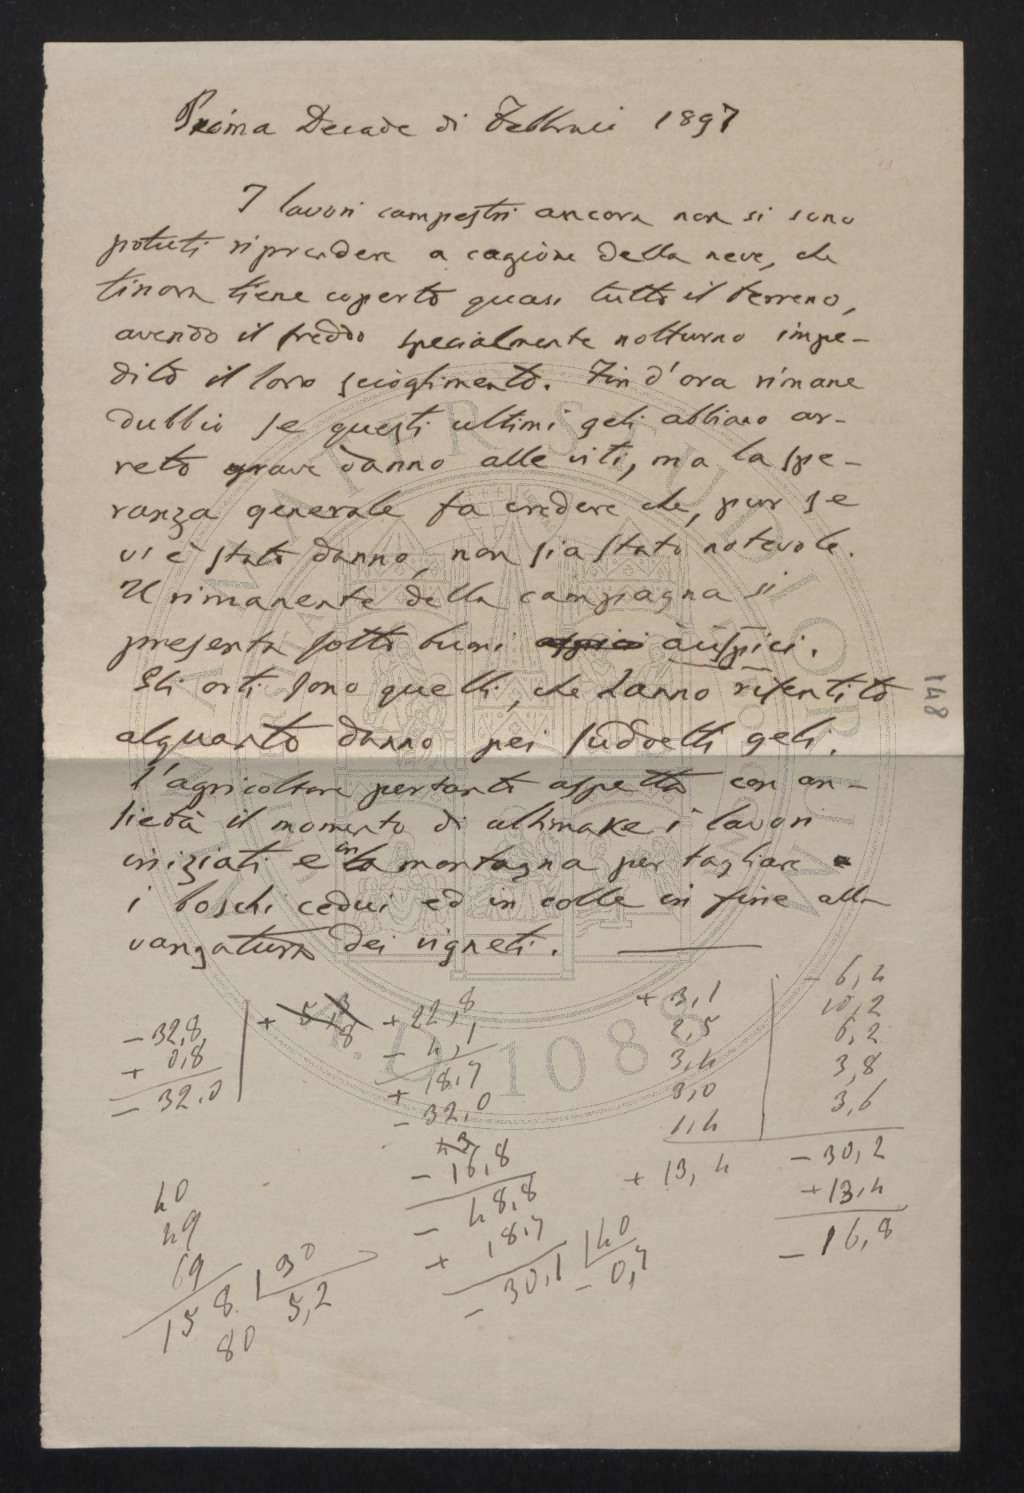 Prima Decade di Febbraio 1897
I lavori campestri ancora non si sono
potuti riprendere a cagione della neve, che
finora tiene coperto quasi tutto il terreno,
avendo il freddo specialmente notturno impe-
dito il loro scioglimento. Fin d'ora rimane
dubbio se questi ultimi geli abbiano ar-
reto grave danno alle viti, ma la spe-
ranza generale fa credere che, pur se
vi è stato danno, non sia stato notevole.
Il rimanente della campagna si
presenta sotto buoni auspici.
Gli orti sono quelli, che hanno risentito
alquanto danno pei suddetti geli.
L'agricoltore pertanto aspetta con an-
sietà il momento di ultimare i lavori
iniziati e in montagna per tagliare
i boschi cedui ed in colle in fine alla
vangatura dei vigneti.
148
- 32,8
+ 0,8
- 32,0
+ 22,8
- 4,1
+ 18,7
- 32,0
- 16,8
- 48,8
+ 18,7
- 30,1 40
- 0,7
+ 3,1
2,5
3,4
3,0
1,4
+ 13,4
- 6,4
10,2
6,2
3,8
3,6
- 30,2
+ 13,4
- 16,8
40
49
69
158 30
80 5,2
ALMA MATER STUDIORUM
A.D. 1088